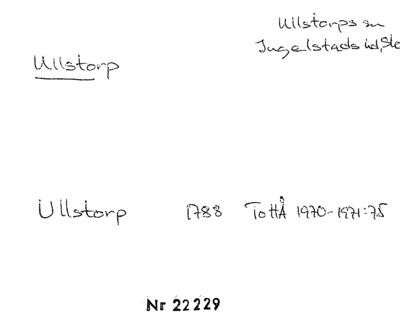 Ullstorps sn
Ingelstads hd, Sk
Ullstorp
Ullstorp 1788 ToHÅ 1970-1971:75
Nr 22229